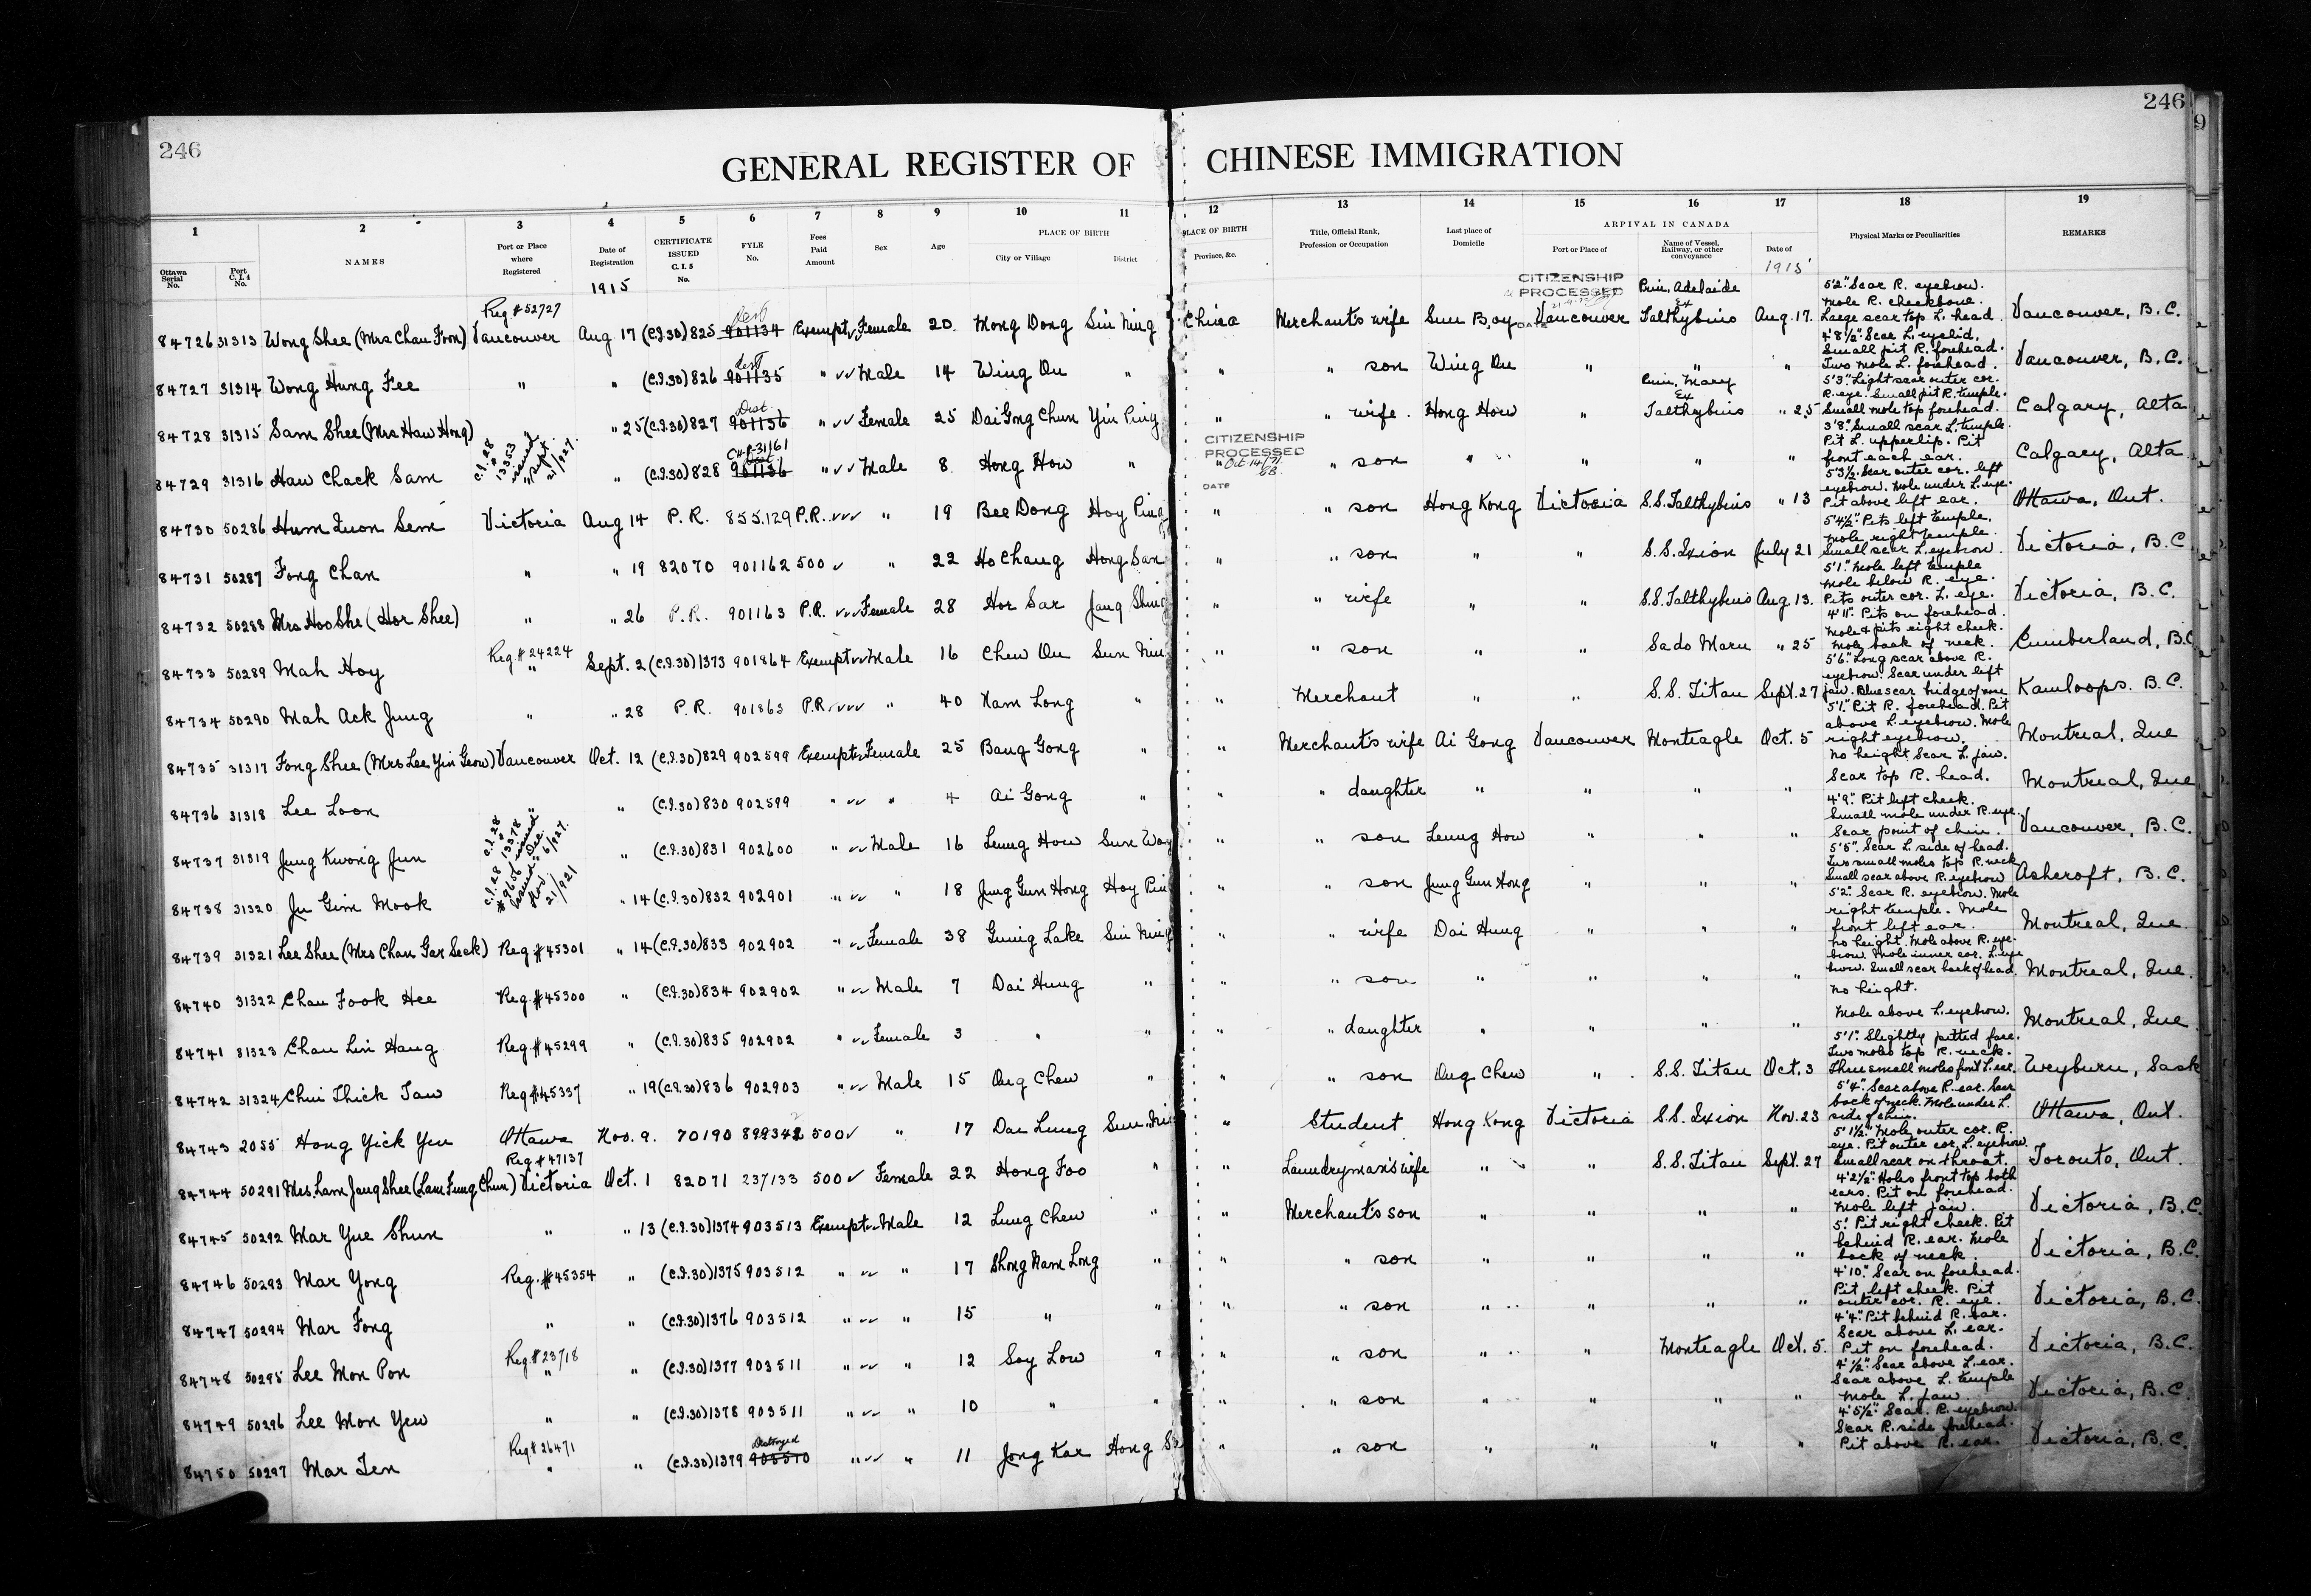 246
246
9
GENERAL REGISTER OF CHINESE IMMIGRATION
1 2 3 4 5 6 7 8 9 10 11 12 13 14 15 16 17 18 19
Ottawa Serial No. Port C. I. 4 No. NAMES Port or Place where Registered Date of Registration CERTIFICATE ISSUED C. I. 5 No. FYLE No. Fees Paid Amount Sex Age PLACE OF BIRTH City or Village District PLACE OF BIRTH Province, &c. Title, Official Rank, Profession or Occupation Last place of Domicile ARRIVAL IN CANADA Port or Place of Name of Vessel, Railway, or other conveyance Date of Physical Marks or Peculiarities REMARKS
1915 1915
CITIZENSHIP PROCESSED DATE
84726 31313 Wong Shee (Mrs Chan Foon) Reg # 52727 Vancouver Aug 17 (C.I.30) 825 dest 901134 Exempt Female 20 Mong Dong Sin Ning China Merchant's wife Sun Booy Vancouver Prin. Adelaide Ex Talthybius Aug. 17. 5'2". Scar R. eyebrow. Mole R. cheekbone. Large scar top L. head. Vancouver, B.C.
84727 31314 Wong Hung Fee " " (C.I.30) 826 dest 901135 " Male 14 Wing On " " " son Wing On " " " 4'8½" Scar L. eyelid. Small pit R. forehead. Two mole L. forehead. Vancouver, B.C.
84728 31315 Sam Shee (Mrs Haw Hong) " " 25 (C.I.30) 827 Dest. 901136 " Female 25 Dai Gng Chun Yin Ping " " wife. Hong How " Prin. Mary Ex Talthybius " 25 5'3". Light scar outer cor. R. eye. Small pit R. temple. Small mole top forehead. Calgary, Alta
84729 31316 Haw Chack Sam C.I. 28 13353 issued Sept. 21/927. " (C.I.30) 828 CH-R-31161 Dest. 901136 " Male 8 Hong How " CITIZENSHIP PROCESSED Oct 14/71 DATE " " son " " " " 3'8". Small scar L. temple. Pit L. upper lip. Pit front each ear. Calgary, Alta
84730 50286 Hum Quon Sem Victoria Aug 14 P.R. 855.129 P.R. " 19 Bee Dong Hoy Ping " " son Hong Kong Victoria S.S. Talthybius " 13 5'3½. Scar outer cor. left eyebrow. Mole under L. eye. Pit above left ear. Ottawa, Ont.
84731 50287 Fong Chan " " 19 82070 901162 500 " 22 Ho Chang Hong San " " son " " S.S. Ixion July 21 5'4½". Pits left temple. Mole right temple. Small scar L. eyebrow. Victoria, B.C.
84732 50288 Mrs Hoo She (Hor Shee) " " 26 P.R. 901163 P.R. Female 28 Hor Sar Jang Shing " " wife " " S.S. Talthybius Aug 13. 5'1". Mole left temple Mole below R. eye. Pits outer cor. L. eye. Victoria, B.C.
84733 50289 Mah Hoy Reg # 24224 " Sept. 2 (C.I.30) 1373 901864 Exempt Male 16 Chew On Sun Nin " " son " " Sado Maru " 25 4'11". Pits on forehead. Mole & pits right cheek. Mole back of neck. Cumberland, B.C.
84734 50290 Mah Ack Jung " " 28 P.R. 901863 P.R. " 40 Nam Long " " Merchant " " S.S. Titan Sept. 27 5'6". Long scar above R. eyebrow. Scar under left jaw. Blue scar bridge of nose Kamloops. B.C.
84735 31317 Fong Shee (Mrs Lee Yin Geow) Vancouver Oct. 12 (C.I.30) 829 902599 Exempt Female 25 Bang Gong " " Merchant's wife Ai Gong Vancouver Monteagle Oct. 5 5'1". Pit R. forehead. Pit above L. eyebrow. Mole right eyebrow. Montreal, Que
84736 31318 Lee Loon " (C.I.30) 830 902599 " " 4 Ai Gong " " " daughter " " " " No height. Scar L. jaw. Scar top R. head. Montreal, Que
84737 31319 Jung Kwong Jun C.I. 28 13378 issued Dec. 6/927. " (C.I.30) 831 902600 " Male 16 Leung How Sun Woy " " son Leung How " " " 4'9". Pit left cheek. Small mole under R. eye. Scar point of chin. Vancouver, B.C.
84738 31320 Ju Gim Mook C.I. 28 #9656 issued Nov. 21/921 " 14 (C.I.30) 832 902901 " " 18 Jung Gun Hong Hoy Pin " " son Jung Gun Hong " " " 5'5". Scar L. side of head. Two small moles top R. neck Small scar above R. eyebrow Ashcroft, B.C.
84739 31321 Lee Shee (Mrs Chan Gar Seck) Reg # 45301 " 14 (C.I.30) 833 902902 " Female 38 Gunig Lake Sin Ning " " wife Dai Hung " " " 5'2". Scar R. eyebrow. Mole right temple. Mole front left ear. Montreal, Que.
84740 31322 Chan Fook Hee Reg # 45300 " (C.I.30) 834 902902 " Male 7 Dai Hung " " " son " " " " No height. Mole above R. eyebrow. Mole inner cor. L. eyebrow. Small scar back of head. Montreal, Que.
84741 31323 Chan Lin Hang Reg # 45299 " (C.I.30) 835 902902 " Female 3 " " " " daughter " " " " No height. Mole above L. eyebrow. Montreal, Que
84742 31324 Chui Thick Taw Reg # 45337 " 19 (C.I.30) 836 902903 " Male 15 Ong Chew " " " son Ong Chew " S.S. Titan Oct. 3 5'1". Slightly pitted face. Two moles top R. neck. Three small moles front L. ear. Weyburn, Sask
84743 2055 Hong Yick Yen Ottawa Nov. 9. 70190 899342 500 " 17 Dai Lung Sun Nin " Student Hong Kong Victoria S.S. Ixion Nov. 23 5'4". Scar above R. ear. Scar back of neck. Mole under L. side of chin. Ottawa, Ont.
84744 50291 Mrs Lam Jang Shee (Lam Fung Chun) Reg # 47137 Victoria Oct. 1 82071 237133 500 Female 22 Hong Foo " " Laundryman's wife " " S.S. Titan Sept. 27 5'1½". Mole outer cor. R. eye. Pit outer cor. L. eyebrow. Small scar on throat. Toronto, Ont.
84745 50292 Mar Yue Shun " " 13 (C.I.30) 1374 903513 Exempt Male 12 Lung Chew " " Merchant's son " " " " 4'2½". Holes front top both ears. Pit on forehead. Mole left jaw. Victoria, B.C.
84746 50293 Mar Yong Reg. # 45354 " (C.I.30) 1375 903512 " " 17 Shong Nam Long " " " son " " " " 5'. Pit right cheek. Pit behind R. ear. Mole back of neck. Victoria, B.C.
84747 50294 Mar Fong " " (C.I.30) 1376 903512 " " 15 " " " " son " " " " 4'10". Scar on forehead. Pit left cheek. Pit outer cor. R. eye. Victoria, B.C.
84748 50295 Lee Mon Pon Reg. # 23718 " " (C.I.30) 1377 903511 " " 12 Soy Low " " " son " " Monteagle Oct. 5. 4'4". Pit behind R. ear. Scar above L. ear. Pit on forehead. Victoria, B.C.
84749 50296 Lee Mon Yew " " (C.I.30) 1378 903511 " " 10 " " " " son " " " " 4'½". Scar above L. ear. Scar above L. temple Mole L. jaw. Victoria, B.C.
84750 50297 Mar Ten Reg # 26471 " " (C.I.30) 1379 Destroyed 903510 " " 11 Jong Kar Hong " " son " " " " 4'5½". Scar. R. eyebrow. Scar R. side forehead. Pit above R. ear. Victoria, B.C.